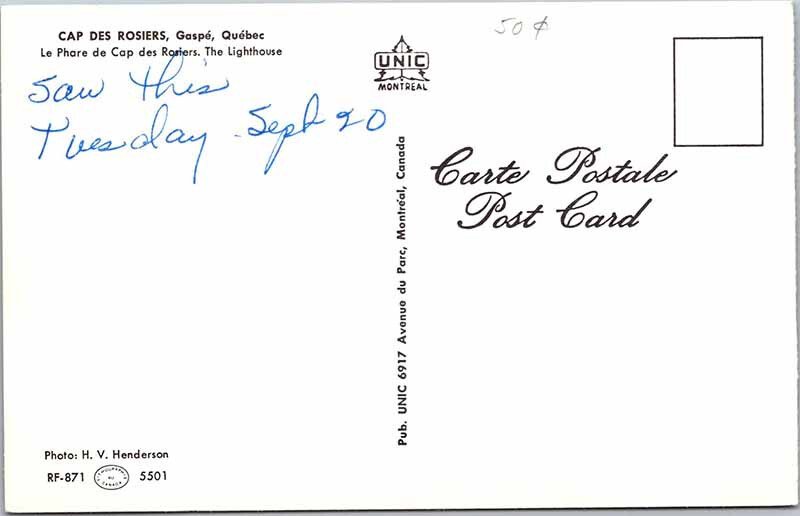 CAP DES ROSIERS, Gaspé, Québec
Le Phare de Cap des Rosiers. The Lighthouse
Saw this
Tuesday Sept 20
50¢
UNIC
MONTREAL
Pub. UNIC 6917 Avenue du Parc, Montréal, Canada
Carte Postale
Post Card
Photo: H. V. Henderson
RF-871 LITHOGRAPHIÉ AU CANADA 5501